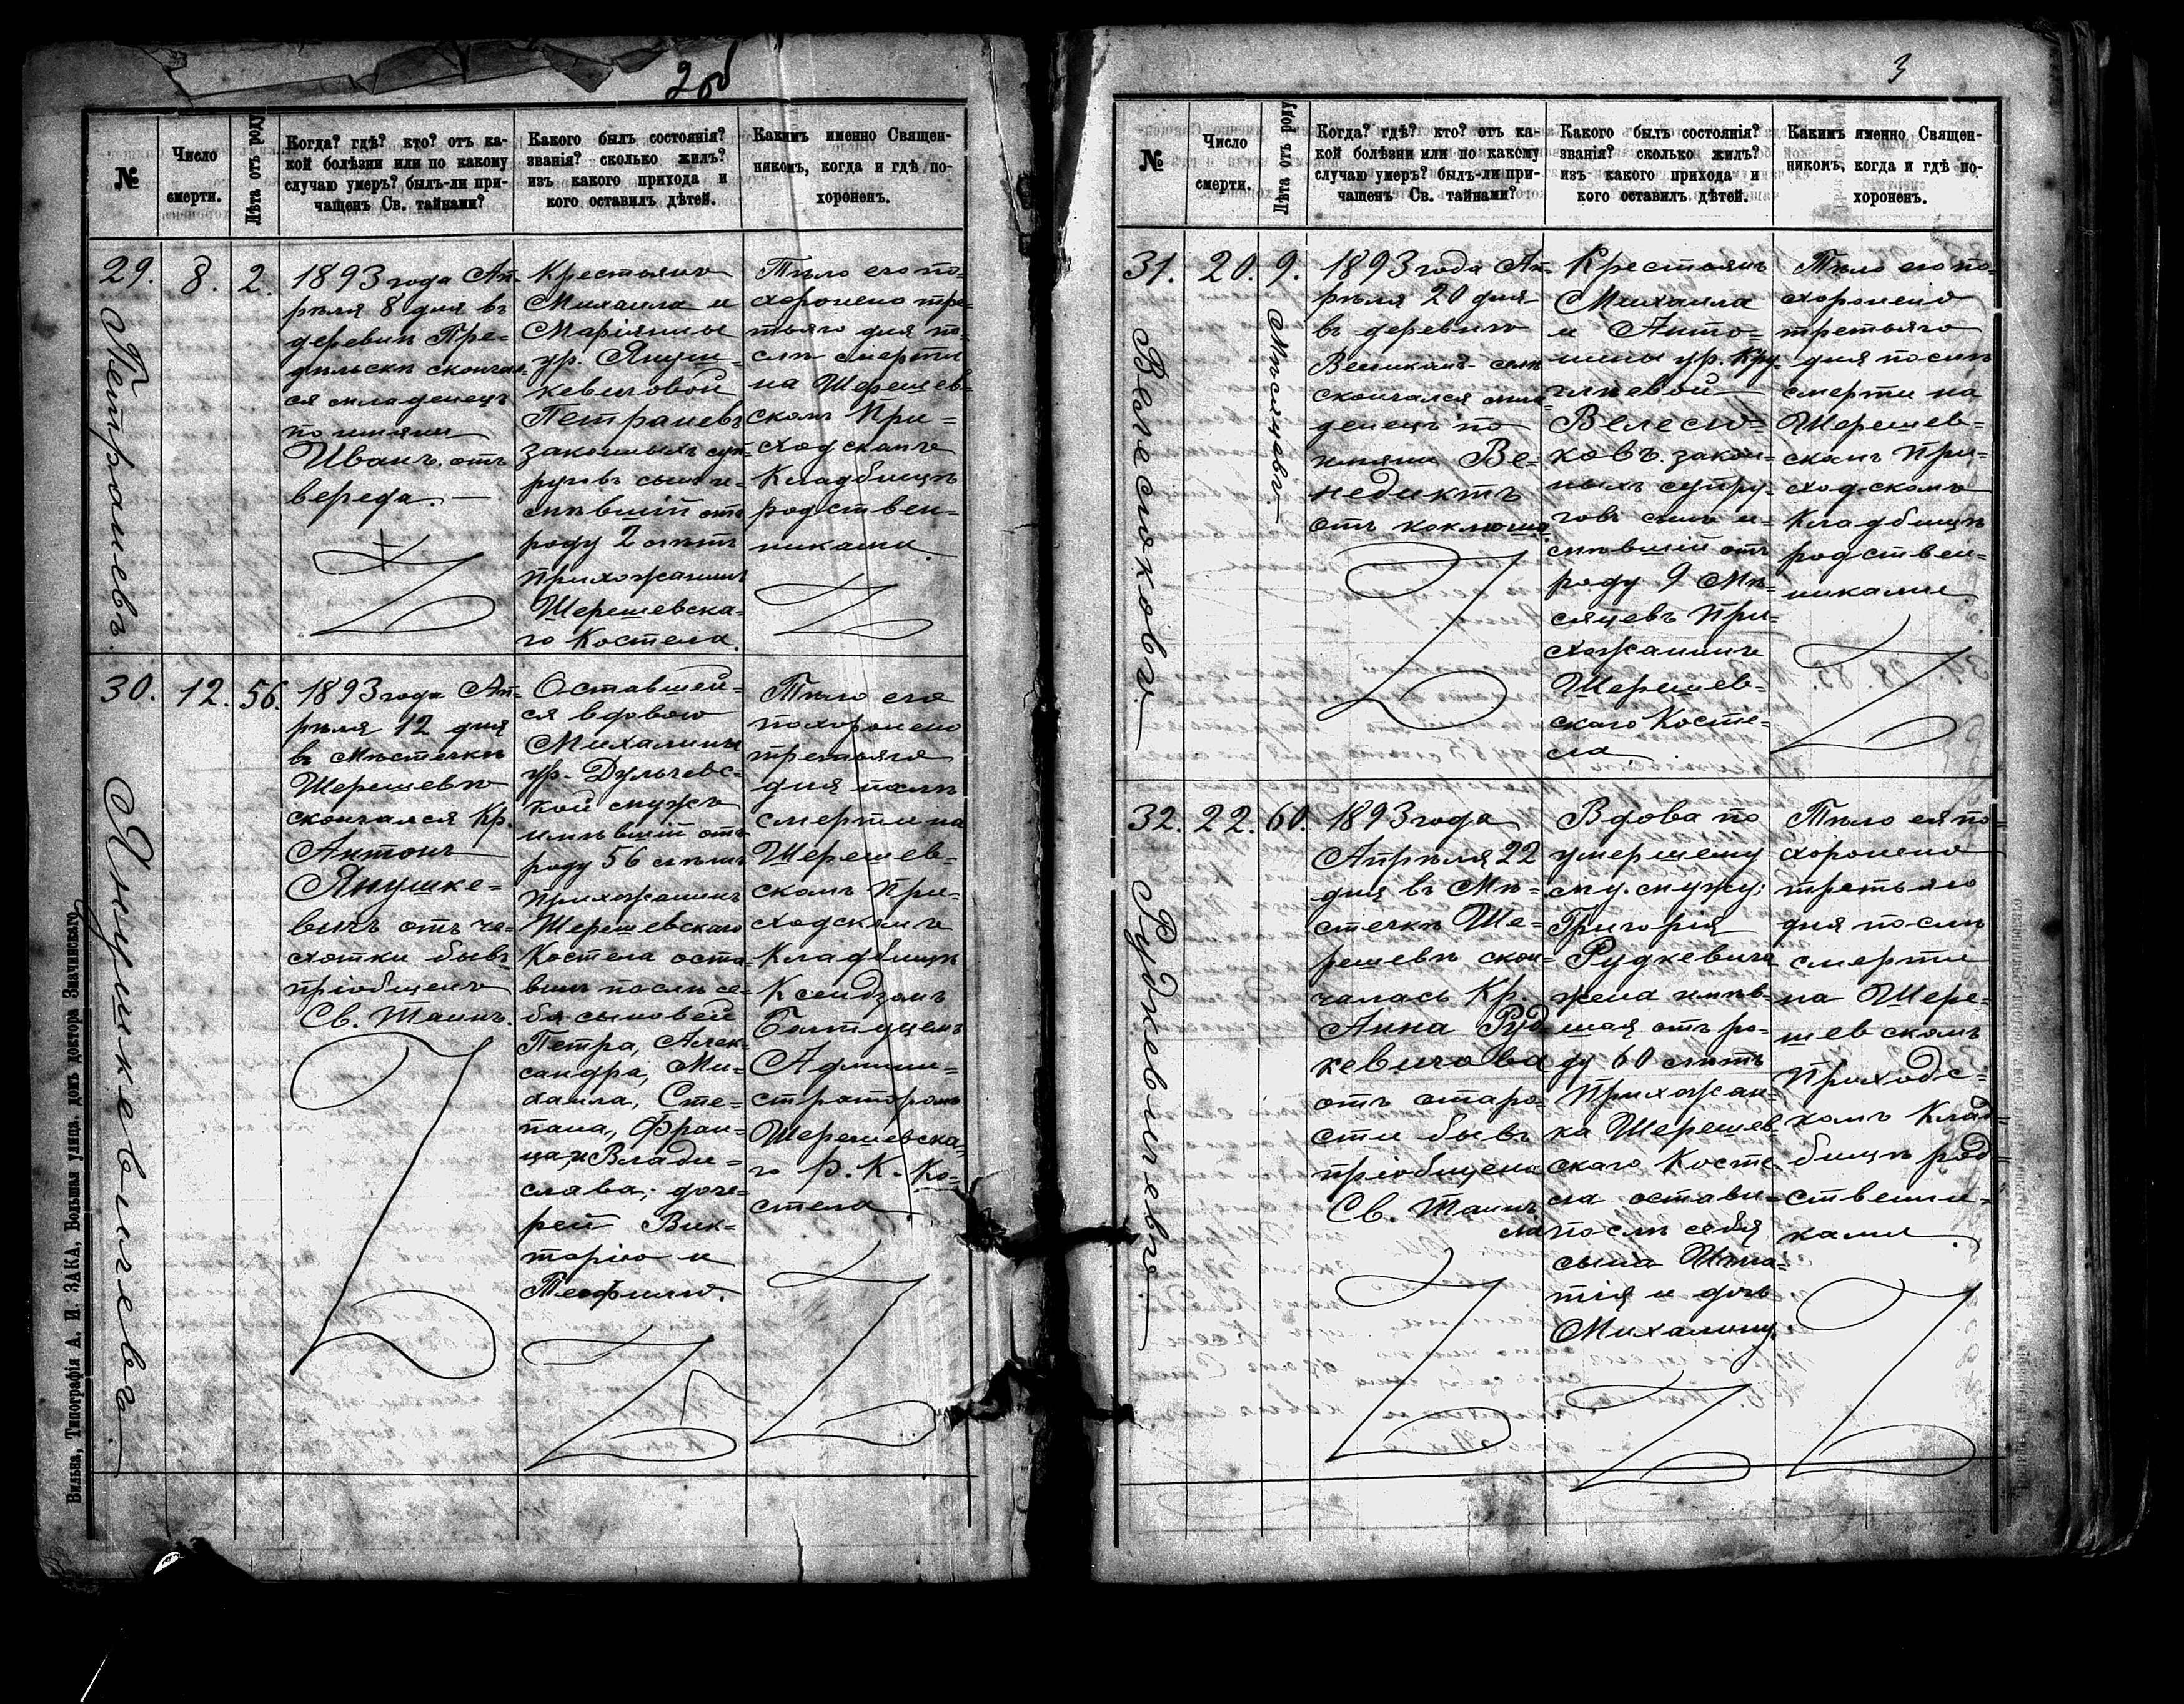 2об
№
Число
смерти.
Лѣта отъ роду
Когда? гдѣ? кто? отъ ка-
кой болѣзни или по какому
случаю умеръ? былъ-ли при-
чащенъ Св. тайнами?
Какого былъ состоянія?
званія? сколько жилъ?
изъ какого прихода и
кого оставилъ дѣтей.
Какимъ именно Священ-
никомъ, когда и гдѣ по-
хороненъ.
29.
Петраневъ.
8.
2.
1893 года Ап-
рѣля 8 дня въ
деревнѣ Пре-
скончал-
ся младенецъ
по имени
Иванъ отъ
вереда. —
Крестьянъ
Михаила и
Маріянны
ур. Януш-
кевичовой
Петраневъ
законныхъ суп-
руговъ сынъ и-
мѣвшій отъ
роду 2 лѣтъ
прихожанинъ
Шерешевска-
го Костела.
Тѣло его по-
хоронено тре-
тьяго дня по-
слѣ смерти
на Шерешев-
скомъ При-
ходскомъ
Кладбищѣ
родствен-
никами.
30.
Янушкевичева.
12.
56.
1893 года Ап-
рѣля 12 дня
въ Мѣстечкѣ
Шерешево
скончался Кр.
Антонъ
Янушке-
вичъ отъ ча-
хотки бывъ
пріобщенъ
Св. Таинъ.
Оставшей-
ся вдовою
Михалины
ур. Дульчевс-
кой мужъ
имѣвшій отъ
роду 56 лѣтъ
прихожанинъ
Шерешевскаго
Костела оста-
вилъ послѣ се-
бя сыновей
Петра, Алек-
сандра, Ми-
хаила, Сте-
пана, Фран-
ца, и Влади-
слава; доче-
рей Вик-
торію и
Теофилю.
Тѣло его
похоронено
третьяго
дня послѣ
смерти на
Шерешев-
скомъ При-
ходскомъ
Кладбищѣ
Ксендзомъ
Админи-
страторомъ
Шерешевска-
го Р. К. Ко-
стела
Вильна, Типографія А. И. ЗАКА, Большая улица, домъ доктора Значинскаго
3
№
Число
смерти.
Лѣта отъ роду
Когда? гдѣ? кто? отъ ка-
кой болѣзни или по какому
случаю умеръ? былъ-ли при-
чащенъ Св. тайнами?
Какого былъ состоянія?
званія? сколько жилъ?
изъ какого прихода и
кого оставилъ дѣтей.
Какимъ именно Священ-
никомъ, когда и гдѣ по-
хороненъ.
31.
Велесюковъ.
20.
9.
Мѣсяцевъ.
1893 года Ап-
рѣля 20 дня
въ деревнѣ
Великомъ-селѣ
скончался мла-
денецъ по
имени Ве-
недиктъ
отъ коклюша.
Крестьянъ
Михаила
и Анто-
нины ур.
Велесю-
ковъ закон-
ныхъ супру-
говъ сынъ и-
мѣвшій отъ
роду 9 Мѣ-
сяцевъ При-
хожанинъ
Шерешев-
скаго Косте-
ла
Тѣло его по-
хоронено
третьяго
дня послѣ
смерти на
Шерешев-
скомъ При-
ходскомъ
Кладбищѣ
родствен-
никами
32.
Рудкевичева.
22.
60.
1893 года
Апрѣля 22
дня въ Мѣ-
стечкѣ Ше-
решевѣ скон-
чалась Кр.
Анна Руд-
кевичова
отъ старо-
сти бывъ
пріобщена
Св. Таинъ
Вдова по
умершему
му. мужу;
Григорія
Рудкевича
жена имѣв-
шая отъ ро-
ду 60 лѣтъ
Прихожан-
ка Шерешев-
скаго Косте-
ла остави-
ла послѣ себя
сына Игна-
тія и дочь
Михалину
Тѣло ея по-
хоронено
третьяго
дня послѣ
смерти
на Шере-
шевскомъ
Приходс-
комъ Клад-
бищѣ род-
ственни-
ками.